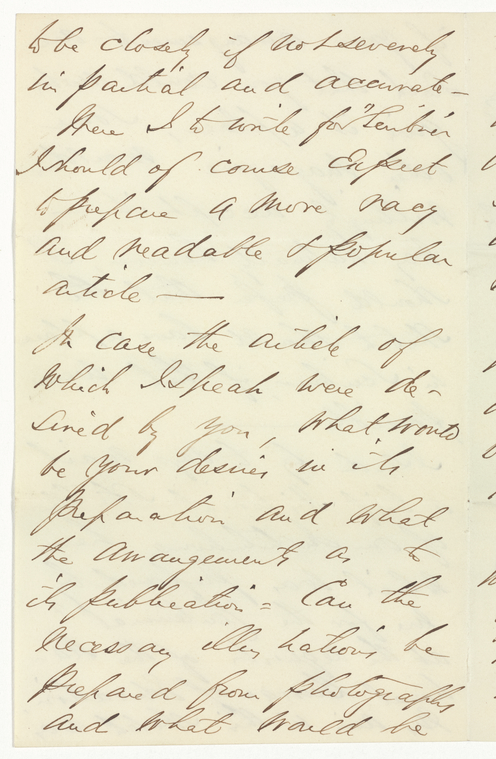 to be closely if not severely
impartial and accurate -
Were I to write for "Scribner
I should of course expect
to prepare a more racy
and readable & popular
article —
In case the article of
which I speak were de-
sired by you, what would
be your desires in its
preparation and what
the arrangements as to
its publication = Can the
necessary illustrations be
prepared from photographs
and what would be